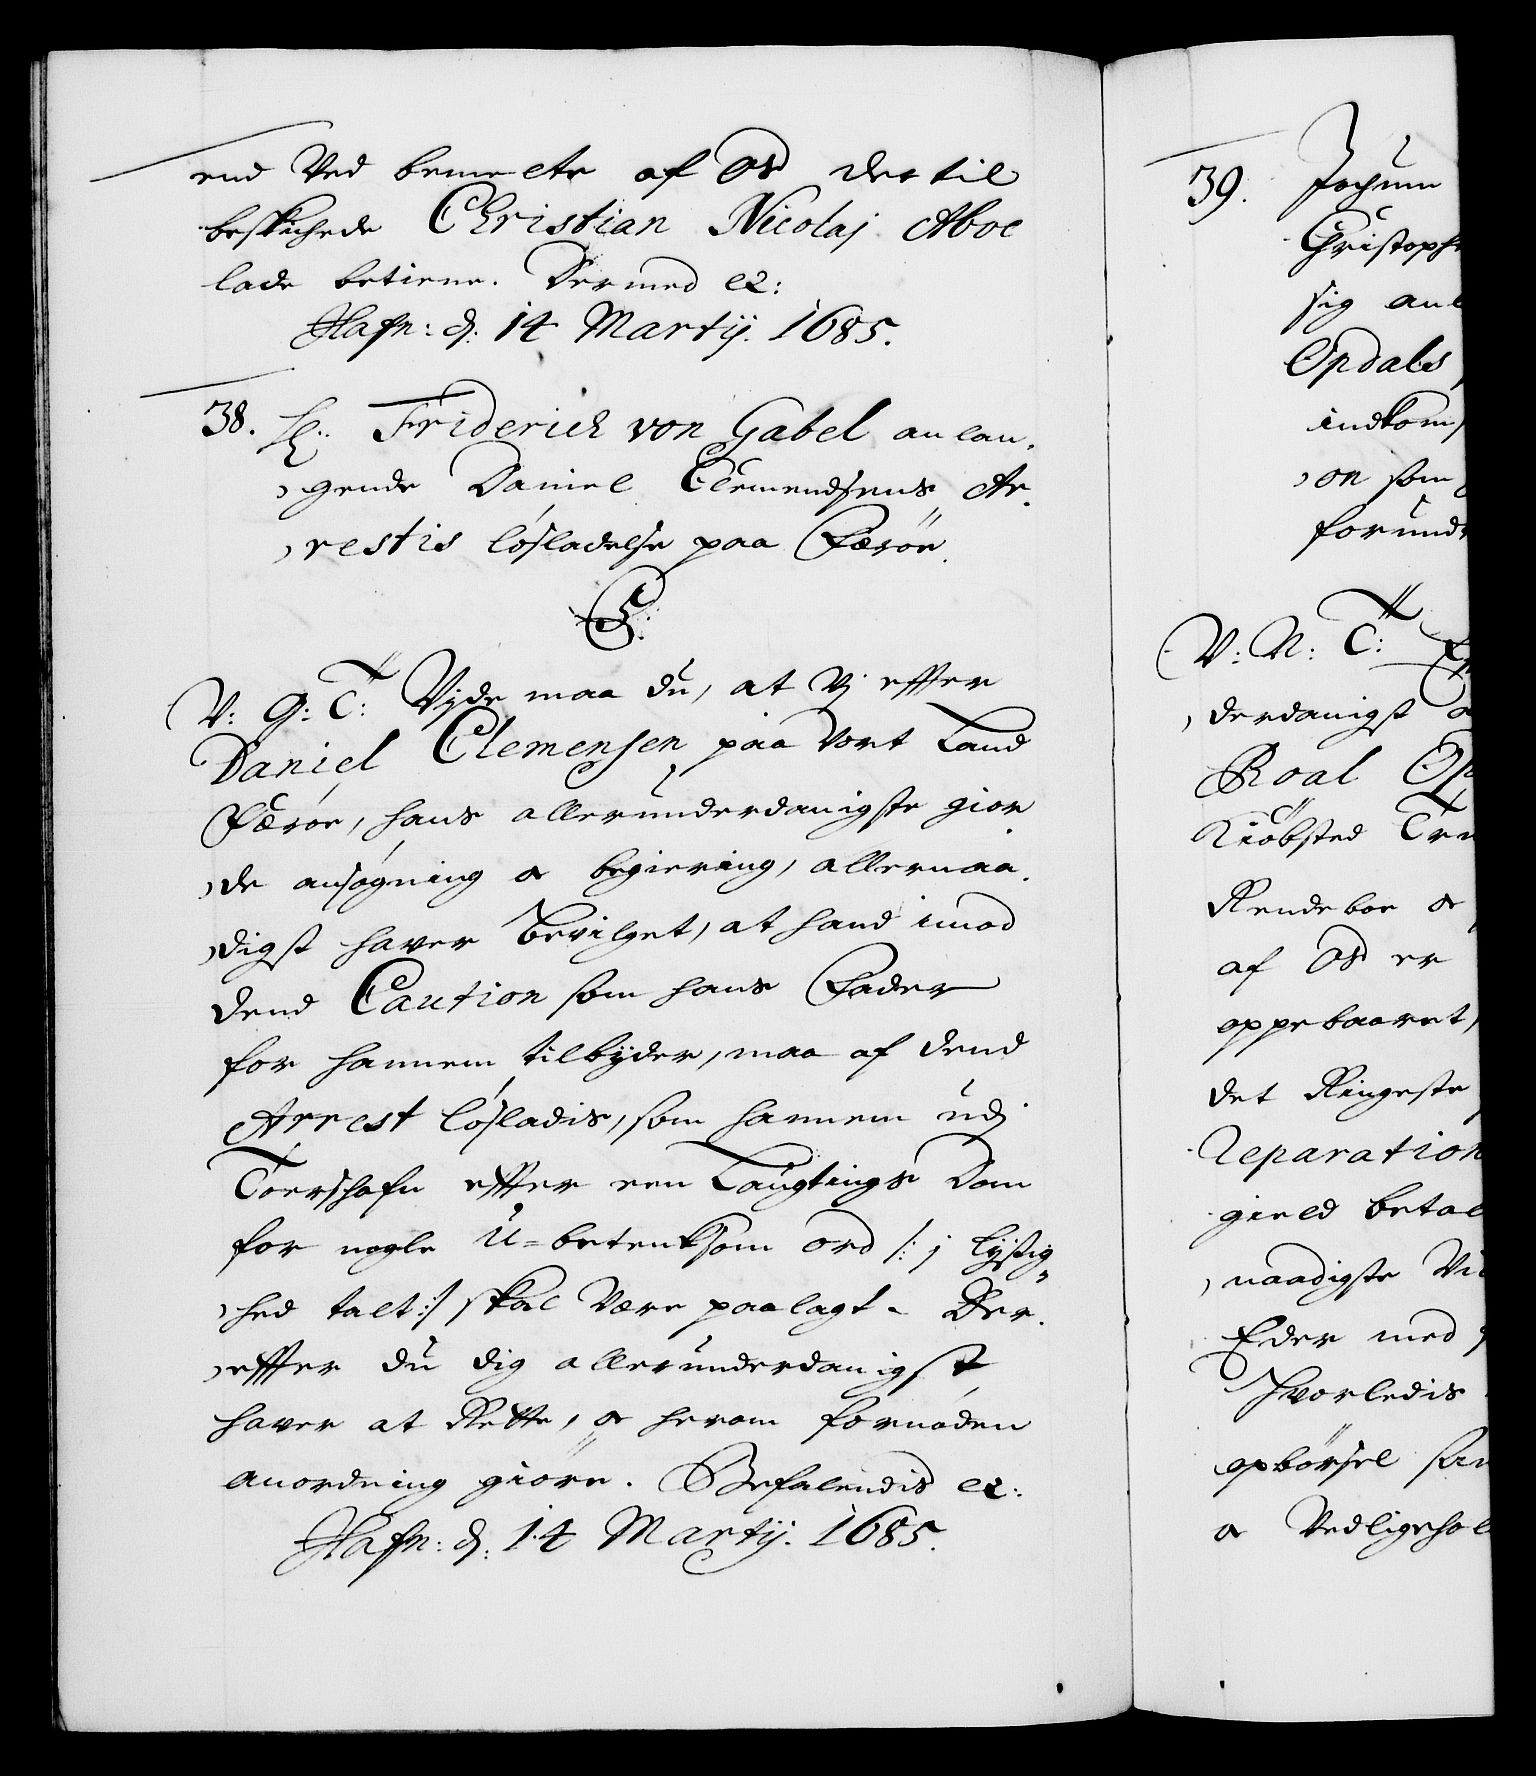 end Ved bemelte af Os der til
beskichede Christian Nicolaj Aboe
lade betiene. Dermed ec:
Hafn: d: 14 Martij. 1685.
38. Friderich von Gabel anlan-
gende Daniel Clemendsens Ar-
restis løsladelse paa Færöe.
V: G: T: Vide maa du, at Vj effter
Daniel Clemensen paa Vort Land
Færöe, hans allerunderdanigste gior-
de ansøgning oc begiering, allernaa-
digst haver bevilget, at hand imod
dend Caution som hans Fader
for hannem tilbyder, maa af dend
Arrest løsladis, som hannem udj
Toershafn effter een Laugtings Dom
for nogle U=betenksom ord /: j lystig-
hed talt :/ skal Være paalagt. Der-
effter du dig allerunderdanigst
haver at Rette, oc herom fornøden
anordning giöre. Befalendis ec:
Hafn: d: 14 Martij. 1685.
39. Jochum
Christoph
sig anl
Opdals
indkom
on som
forund
V: N: T:
derdanigst
Roal Op
Kiöbsted Tr
Rendeboe oc
af Os er
oppebaaret,
det Ringeste
Reparation
gield betal
naadigste Vi
Eder med
Hvorledis
opbörsel
oc Vedligehol